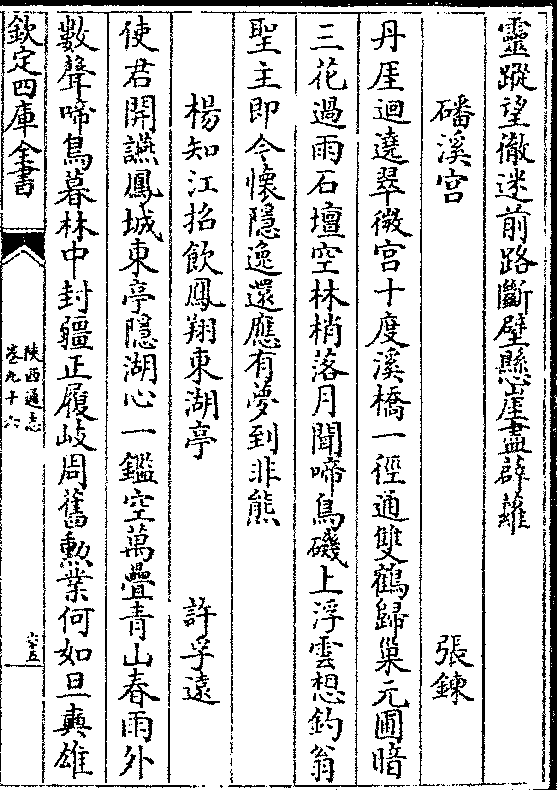 靈蹤望徹迷前路斷壁懸崖盡薜蘿
磻溪宫
張鍊
丹厓迴遶翠微宫十度溪橋一徑通雙鶴歸巢元圃暗
三花過雨石壇空林梢落月聞啼鳥磯上浮雲想釣翁
聖主即今懷隱逸還應有夢到非熊
楊知江招飲鳳翔東湖亭
許孚遠
使君開讌鳳城東亭隱湖心一鑑空萬疊青山春雨外
數聲啼鳥暮林中封疆正履岐周舊勲業何如旦奭雄
欽定四庫全書
陜西通志
卷九十六
六五